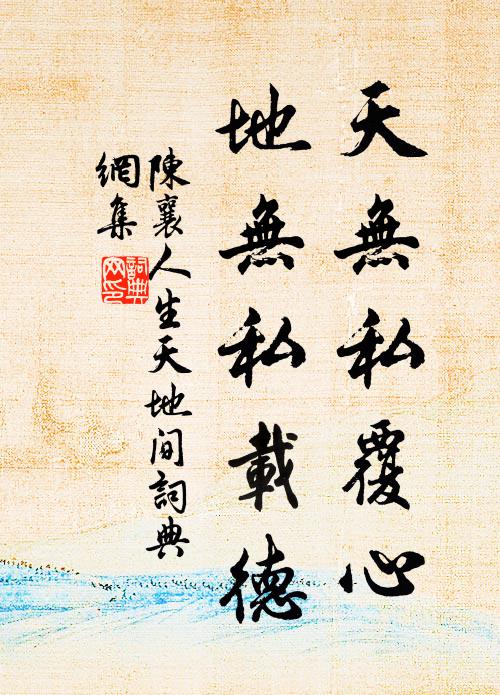 天無私覆心
地無私載德
陳襄人生天地間詞典
網集
詞典網印